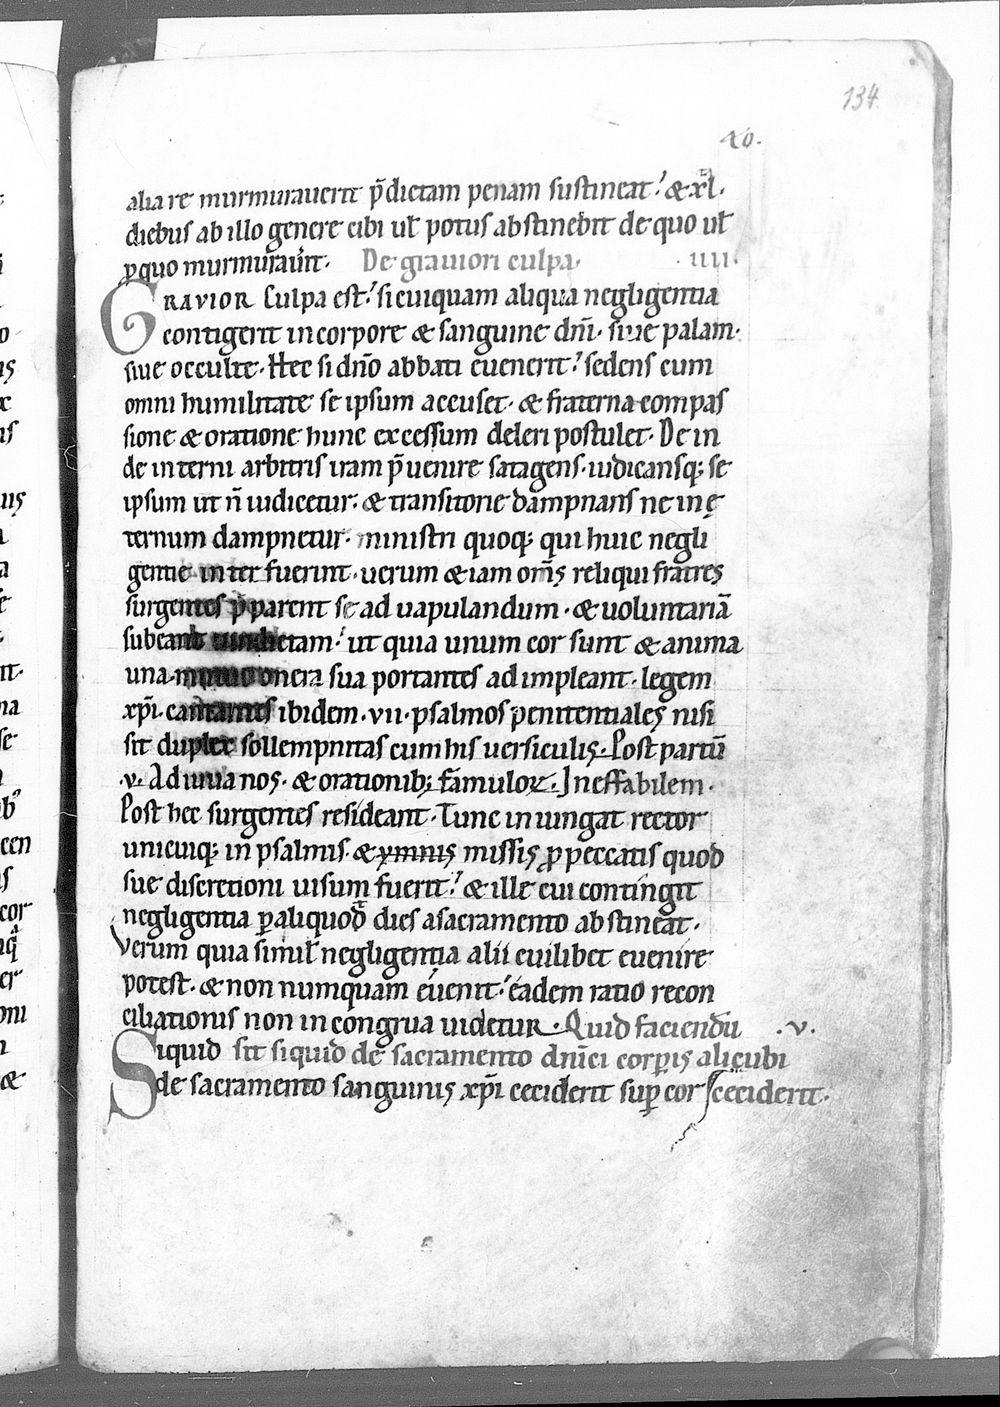 134.
40.
alia re murmurauerit p̄dictam penam sustineat? & xl.
diebus ab illo genere cibi ul̄ potus abstinebit de quo ul̄
ꝓ quo murmurau̾it. De grauiori culpa. .iiii.
GRAVIOR Culpa est? si cuiquam aliqua negligentia
contigerit in corpore & sanguine dn̄i. siue palam.
siue occulte. Hec si dn̄o abbati euenerit? sedens cum
omni humilitate se ipsum accuset. & fraterna compas
sione & oratione hunc excessum deleri postulet. De in
de interni arbitris iram p̄uenire satagens. iudicansq; se
ipsum ut n̄ iudicetur. & transitorie dampnans ne in ę
ternum dampnetur. ministri quoq; qui huic negli
gentie inter fuerint. uerum & iam om̄s reliqui fratres
surgentes p̄parent se ad uapulandum. & uoluntariā
subeant uindictam? ut quia unum cor sunt & anima
una. mutuo onera sua portantes ad impleant. legem
xp̄i. cantantes ibidem .vii. psalmos penitentiales nisi
sit duplex sollempnitas cum his uersiculis. Post partū
.v. Adiuua nos. & orationib; famuloꝝ. Ineffabilem.
Post hec surgentes resideant. Tunc iniungat rector
unicuiq; in psalmis. & ymnis missis ꝓ peccatis quod
sue discretioni uisum fuerit? & ille cui contingit
negligentia ꝑ aliquod̄ dies a sacramento abstineat.
Verum quia simil̄ negligentia alii cuilibet euenire
potest. & non numquam euenit? eadem ratio recon
ciliationis non incongrua uidetur. Quid faciendū .v.
Siquid sit siquid de sacramento dn̄ici corꝑis alicubi
de sacramento sanguinis xp̄i ceciderit suꝑ cor ceciderit.